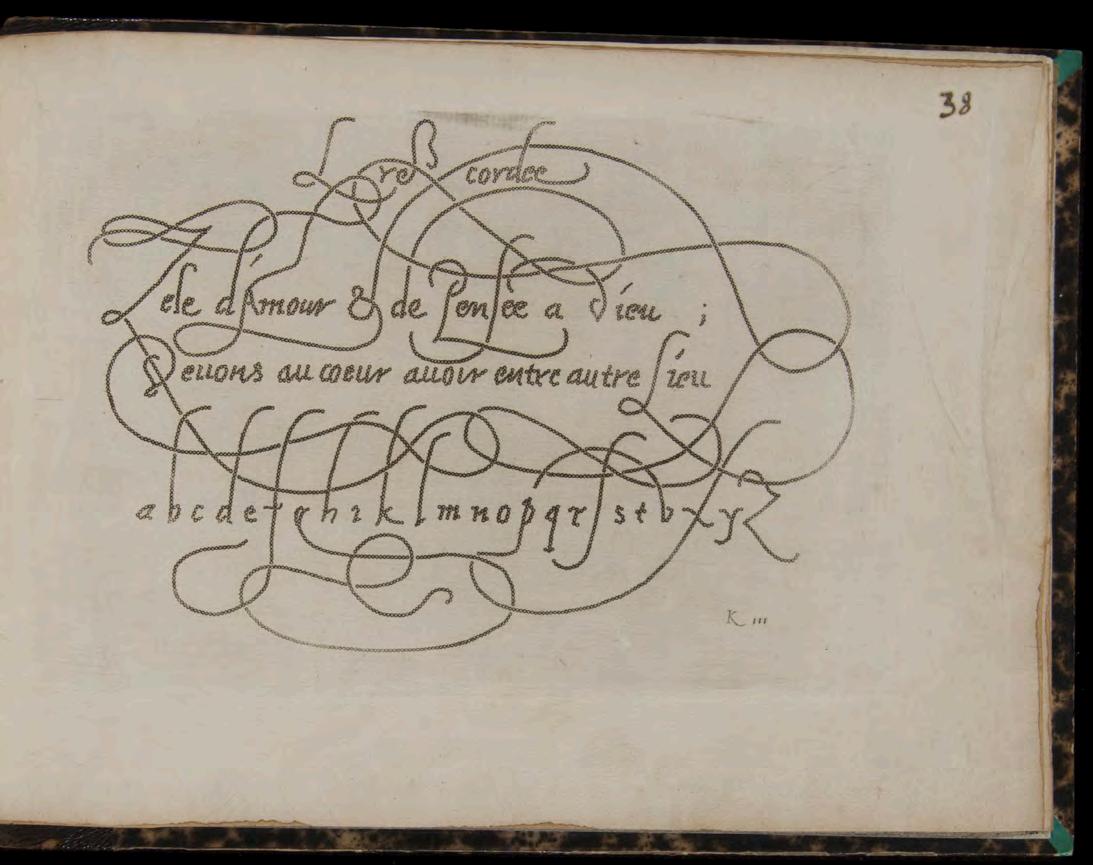 38
Lreß cordee
Zele d'Amour & de Pensée a Dieu ;
Deuons au coeur auoir entre autre lieu
a b c d e f g h i k l m n o p q r ſ s t v x y Z
K iii